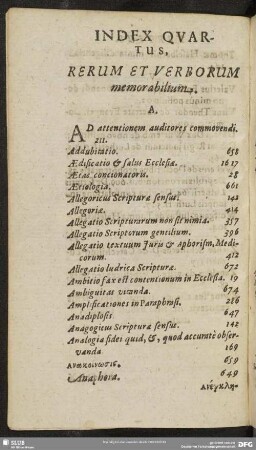 INDEX QVAR-
TUS,
RERUM ET VERBORUM
memorabilium.
A.
AD attentionem auditores commovendi.
211.
Addubitatio. 658
Ædificatio & salus Ecclesiæ. 1617
Ætas concionatoris. 28
Ætiologia. 661
Allegoricus Scripturæ sensus. 142
Allegoriæ. 414
Allegatio Scripturarum non sit nimia. 357
Allegatio Scriptorum gentilium. 396
Allegatio textuum Juris & aphorism, Medi-
corum 412
Allegatio ludicra Scripturæ. 672
Ambitio fax est contentionum in Ecclesia. 19
Ambiguitas vitanda. 674
Amplificationes in Paraphrosi. 286
Anadiplosis 647
Anagogicus Scripturæ sensus. 142
Analogia fidei quid, &, quod accuratè obser-
vanda 169
Ανακοινωσις. 659
Anaphora. 649
Ανέγκλη-
SLUB